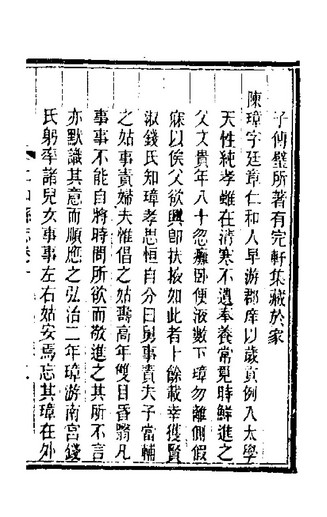 子傅璧所著有完軒集藏於家
陳璋字廷章仁和人早游郡庠以歲貢例入太學
天性純孝雖在清寒不遺奉養常覓時鮮進之
父文貴年八十忽癱卧便液數下璋勿離側假
寐以俟父欲興卽扶掖如此者十餘載幸獲賢
淑錢氏知璋孝思恒自分曰舅事責夫子當輔
之姑事責婦夫惟倡之姑壽高年雙目昏翳凡
事事不能自將時問所欲而敬進之其所不言
亦默識其意而順應之弘治二年璋游南宮錢
氏躬率諸兒女事事左右姑安焉忘其璋在外